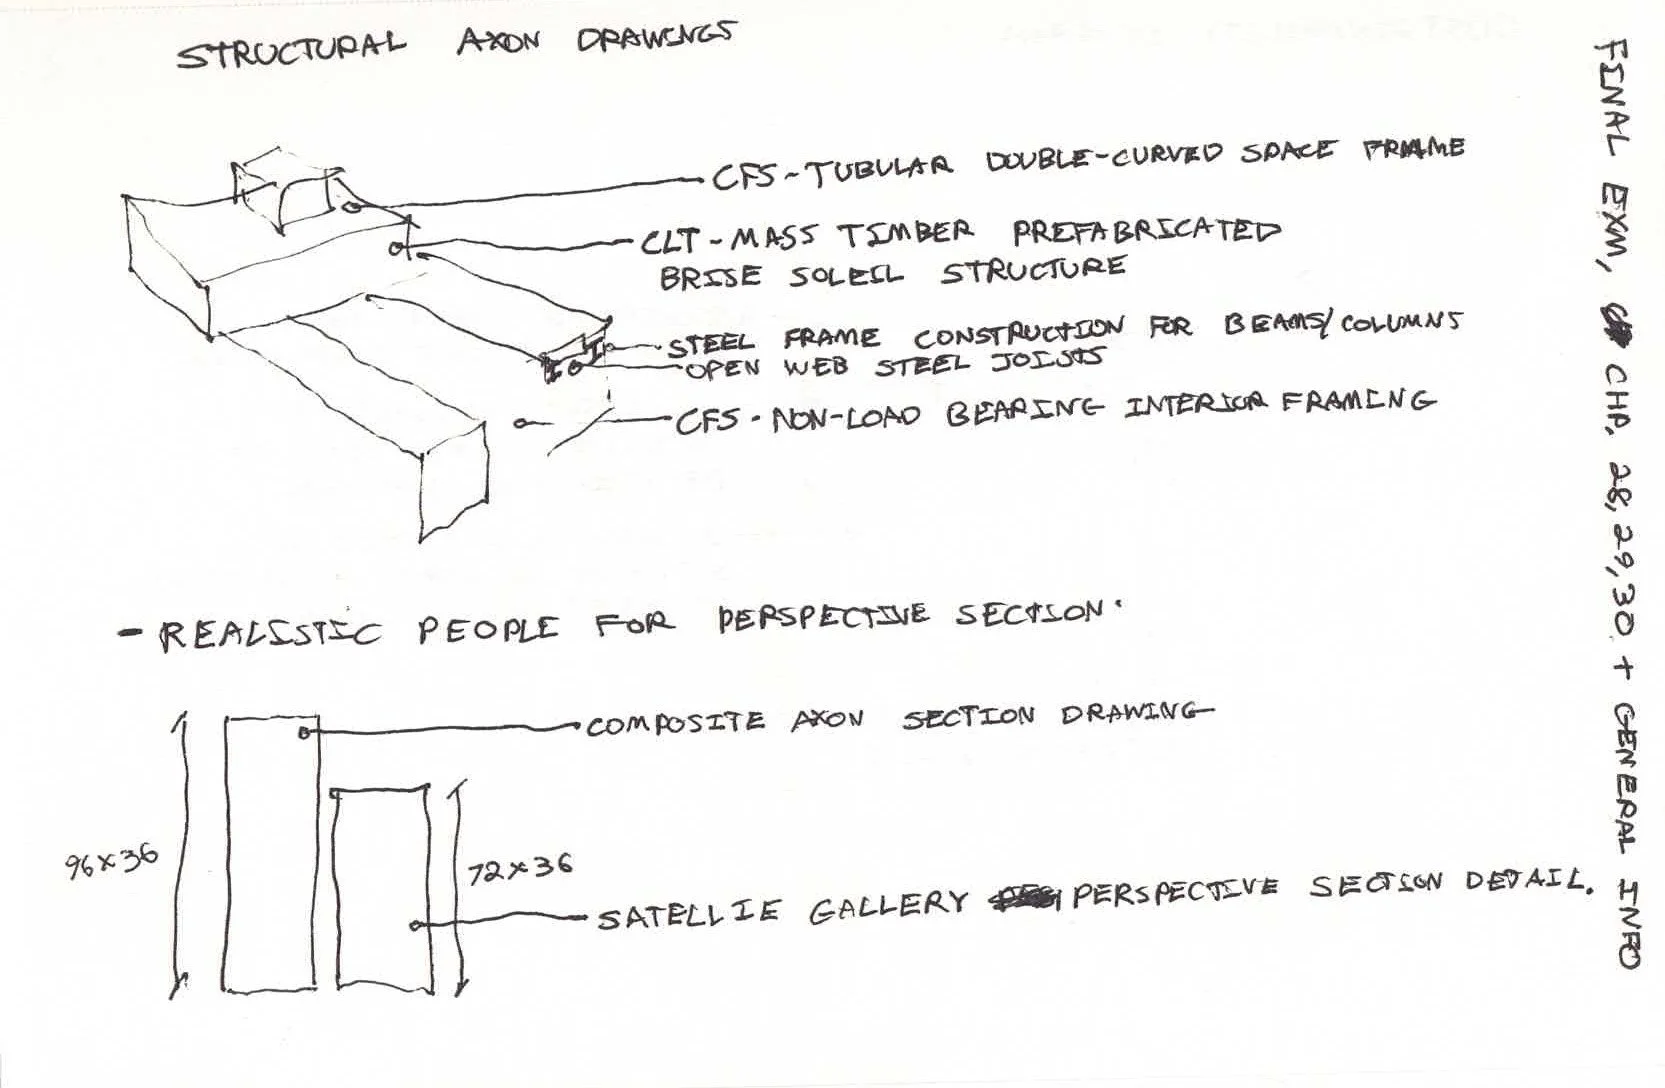 STRUCTURAL AXON DRAWINGS
CFS-TUBULAR DOUBLE-CURVED SPACE FRAME
CLT-MASS TIMBER PREFABRICATED
BRISE SOLEIL STRUCTURE
STEEL FRAME CONSTRUCTION FOR BEAMS/COLUMNS
OPEN WEB STEEL JOISTS
CFS-NON-LOAD BEARING INTERIOR FRAMING
- REALISTIC PEOPLE FOR PERSPECTIVE SECTION.
COMPOSITE AXON SECTION DRAWING
96x36
72x36
SATELLIE GALLERY PERSPECTIVE SECTION DETAIL.
FINAL EXM, CHP. 28, 29, 30 + GENERAL INFO